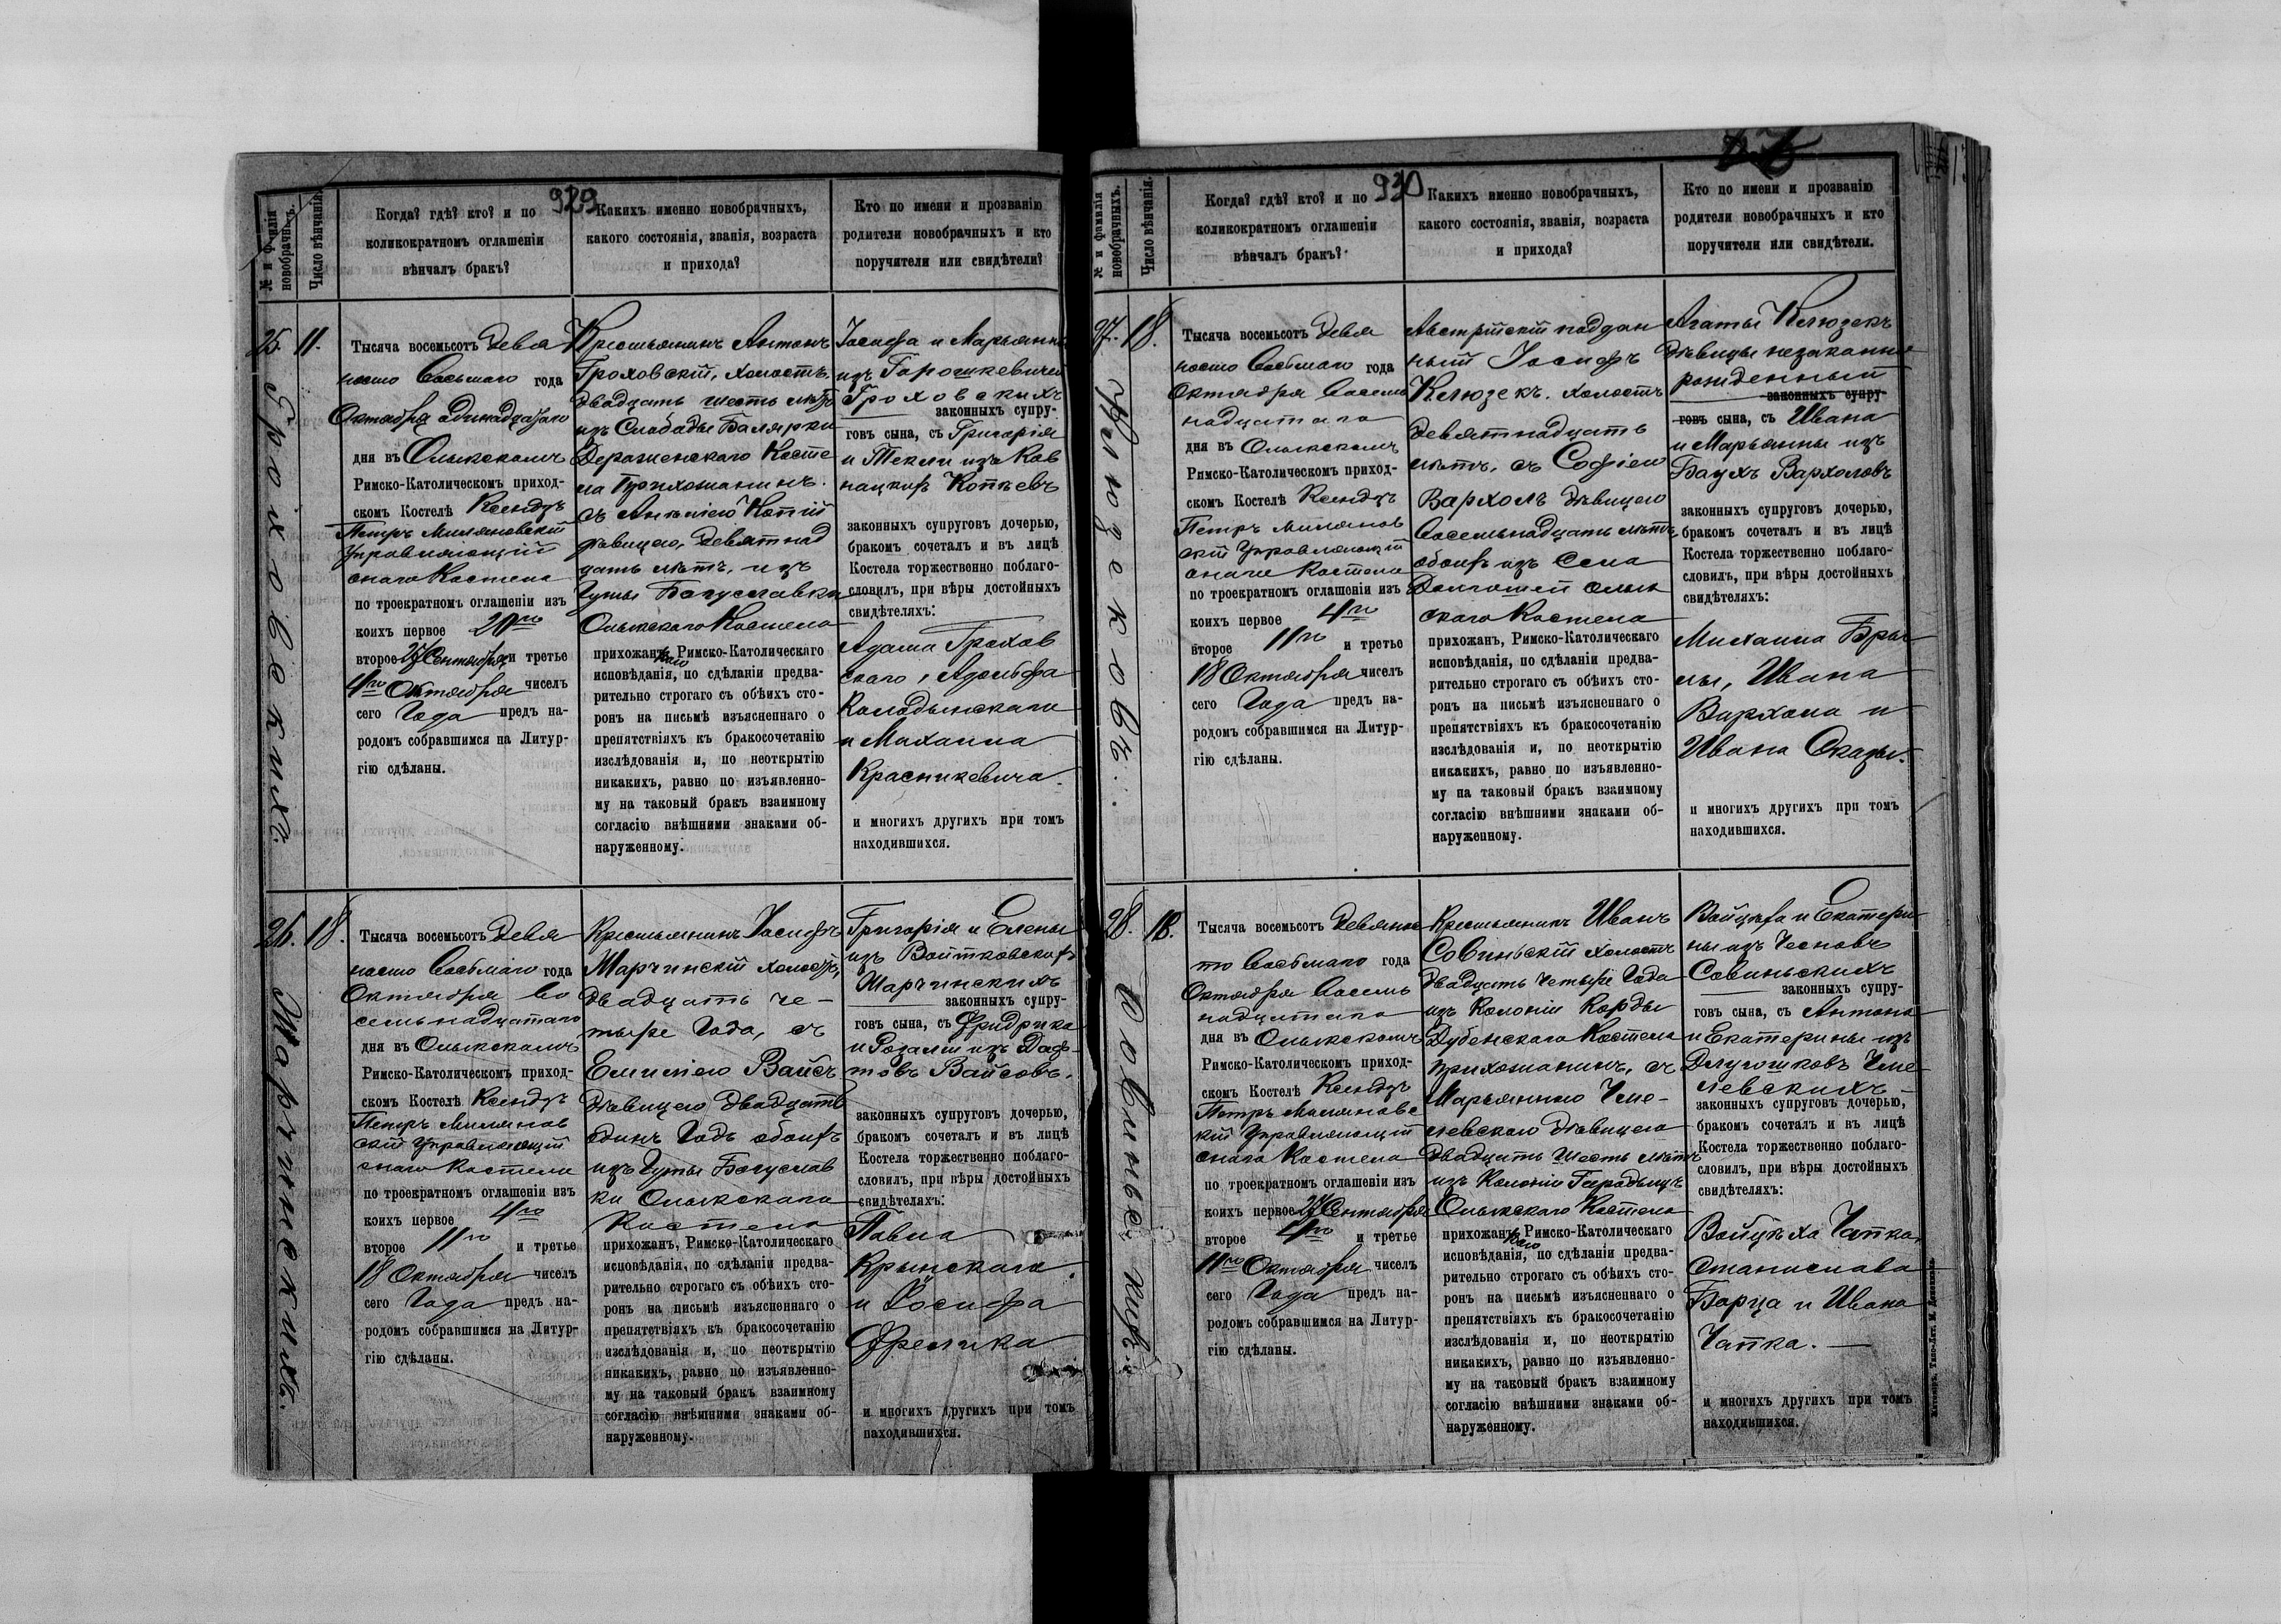 929
№ и фамилія новобрачныхъ.
Число вѣнчанія.
Когда? гдѣ? кто? и по
коликократномъ оглашеніи
вѣнчалъ бракъ?
Какихъ именно новобрачныхъ,
какого состоянія, званія, возраста
и прихода?
Кто по имени и прозванію
родители новобрачныхъ и кто
поручители или свидѣтели?
25.
Гроховскихъ.
11.
Тысяча восемьсотъ девя
носто восьмаго года
Октября одинадцатаго
дня въ Олыкскомъ
Римско-Католическомъ приход-
скомъ Костелѣ Ксендзъ
Петръ Миляновскій
Управляющій
онаго Костела
по троекратномъ оглашеніи изъ
коихъ первое 20го
второе 27 Сентября и третье
4го Октября чиселъ
сего Года предъ на-
родомъ собравшимся на Литур-
гію сдѣланы.
Крестьянинъ Антонъ
Гроховскій, холостъ,
двадцать шесть лѣтъ
изъ Слободы Балярки
Деражненскаго Косте
ла Прихожанинъ.
съ Анелею Копій
дѣвицею, девятнад
цать лѣтъ, изъ
Гуты Богуславки
Олыкскаго Костела
прихожанъ, Римско-Католическаго
исповѣданія, по сдѣланіи предва-
рительно строгаго съ обѣихъ сто-
ронъ на письмѣ изъясненнаго о
препятствіяхъ къ бракосочетанію
изслѣдованія и, по неоткрытію
никакихъ, равно по изъявленно-
му на таковый бракъ взаимному
согласію внѣшними знаками об-
наруженному.
Іосифа и Марьянны
изъ Горошкевичей
Гроховскихъ
законныхъ супру-
говъ сына, съ Григорія
и Текли изъ Ков
нацкихъ Копѣевъ
законныхъ супруговъ дочерью,
бракомъ сочеталъ и въ лицѣ
Костела торжественно поблаго-
словилъ, при вѣры достойныхъ
свидѣтеляхъ:
Адама Грохов
скаго, Адольфа
Колодынскаго
и Михаила
Красникевича.
и многихъ другихъ при томъ
находившихся.
26.
Марчинскихъ.
18.
Тысяча восемьсотъ девя
носто восьмаго года
Октября во
семьнадцатаго
дня въ Олыкскомъ
Римско-Католическомъ приход-
скомъ Костелѣ Ксендзъ
Петръ Милянов
скій Управляющій
онаго Костела
по троекратномъ оглашеніи изъ
коихъ первое 4го
второе 11го и третье
18 Октября чиселъ
сего Года предъ на-
родомъ собравшимся на Литур-
гію сдѣланы.
Крестьянинъ Іосифъ
Марчинскій холостъ,
двадцать че-
тыре года, съ
Емилiею Вайсъ
дѣвицею двадцать
одинъ годъ обоихъ
изъ Гуты Богуслав
ки Олыкскаго
Костела
прихожанъ, Римско-Католическаго
исповѣданія, по сдѣланіи предва-
рительно строгаго съ обѣихъ сто-
ронъ на письмѣ изъясненнаго о
препятствіяхъ къ бракосочетанію
изслѣдованія и, по неоткрытію
никакихъ, равно по изъявленно-
му на таковый бракъ взаимному
согласію внѣшними знаками об-
наруженному.
Григорія и Елены
изъ Войтковскихъ
Марчинскихъ
законныхъ супру-
говъ сына, съ Фридрика
и Розаліи изъ Даф-
товъ Вайсовъ.
законныхъ супруговъ дочерью,
бракомъ сочеталъ и въ лицѣ
Костела торжественно поблаго-
словилъ, при вѣры достойныхъ
свидѣтеляхъ:
Павла
Крынскаго
и Іосифа
Фрелика
и многихъ другихъ при томъ
находившихся.
930
№ и фамилія новобрачныхъ.
Число вѣнчанія.
Когда? гдѣ? кто? и по
коликократномъ оглашеніи
вѣнчалъ бракъ?
Какихъ именно новобрачныхъ,
какого состоянія, званія, возраста
и прихода?
Кто по имени и прозванію
родители новобрачныхъ и кто
поручители или свидѣтели.
27.
18.
Тысяча восемьсотъ девя
носто восьмаго года
Октября восемь
надцатаго
дня въ Олыкскомъ
Римско-Католическомъ приход-
скомъ Костелѣ Ксендзъ
Петръ Милянов
скій Управляющій
онаго Костела
по троекратномъ оглашеніи изъ
коихъ первое 4го
второе 11го и третье
18 Октября чиселъ
сего Года предъ на-
родомъ собравшимся на Литур-
гію сдѣланы.
Австрійскій поддан
ный Іосифъ
Келюзекъ. холостъ
девятнадцать
лѣтъ, съ Софіею
Вархолъ дѣвицею
восемьнадцать лѣтъ
обоихъ изъ Села
Долгошей Олык
скаго Костела
прихожанъ, Римско-Католическаго
исповѣданія, по сдѣланіи предва-
рительно строгаго съ обѣихъ сто-
ронъ на письмѣ изъясненнаго о
препятствіяхъ къ бракосочетанію
изслѣдованія и, по неоткрытію
никакихъ, равно по изъявленно-
му на таковый бракъ взаимному
согласію внѣшними знаками об-
наруженному.
Агаты Келюзекъ
дѣвицы незаконно
рожденный
законныхъ супру-
говъ сына, съ Ивана
и Марьянны изъ
Бацхъ Вархоловъ
законныхъ супруговъ дочерью,
бракомъ сочеталъ и въ лицѣ
Костела торжественно поблаго-
словилъ, при вѣры достойныхъ
свидѣтеляхъ:
Михаила Бры
лы, Ивана
Вархола и
Ивана
и многихъ другихъ при томъ
находившихся.
28.
Совиньскихъ
18.
Тысяча восемьсотъ девянос
то восьмаго года
Октября восемь
надцатаго
дня въ Олыкскомъ
Римско-Католическомъ приход-
скомъ Костелѣ Ксендзъ
Петръ Миляновс
кій Управляющій
онаго Костела
по троекратномъ оглашеніи изъ
коихъ первое 27 Сентября
второе 4го и третье
11го Октября чиселъ
сего Года предъ на-
родомъ собравшимся на Литур-
гію сдѣланы.
Крестьянинъ Иванъ
Совиньскій холостъ
двадцать четыре года
изъ Колоніи Корды
Дубенскаго Костела
прихожанинъ, съ
Марьянною Чме-
левскаго дѣвицею
двадцать шесть лѣтъ
изъ Колоніи Гарадыщъ
Олыкскаго Костела
прихожанъ, Римско-Католическаго
исповѣданія, по сдѣланіи предва-
рительно строгаго съ обѣихъ сто-
ронъ на письмѣ изъясненнаго о
препятствіяхъ къ бракосочетанію
изслѣдованія и, по неоткрытію
никакихъ, равно по изъявленно-
му на таковый бракъ взаимному
согласію внѣшними знаками об-
наруженному.
Войцѣха и Екатери
ны изъ Чесновъ
Совиньскихъ
законныхъ супру-
говъ сына, съ Антона
и Екатерины изъ
Длугошковъ Чме
левскихъ
законныхъ супруговъ дочерью,
бракомъ сочеталъ и въ лицѣ
Костела торжественно поблаго-
словилъ, при вѣры достойныхъ
свидѣтеляхъ:
Войцѣха Чапка,
Станислава
Барца и Ивана
Чапка.
и многихъ другихъ при томъ
находившихся.